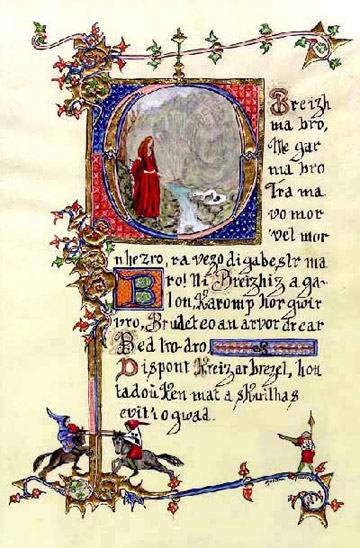 O Breizh
ma bro,
Me gar
ma bro
Tra ma
vo mor
vel mor
n he zro, ra vezo digabestr ma
Bro! Ni Breizhiz a ga-
lon, Karomp hor gwir
vro, Brudet eo an arvor dre ar
Bed tro-dro
Dispont Kreiz ar brezel, hon
tadou Ken mat a skuilhas
evit i o gwad.